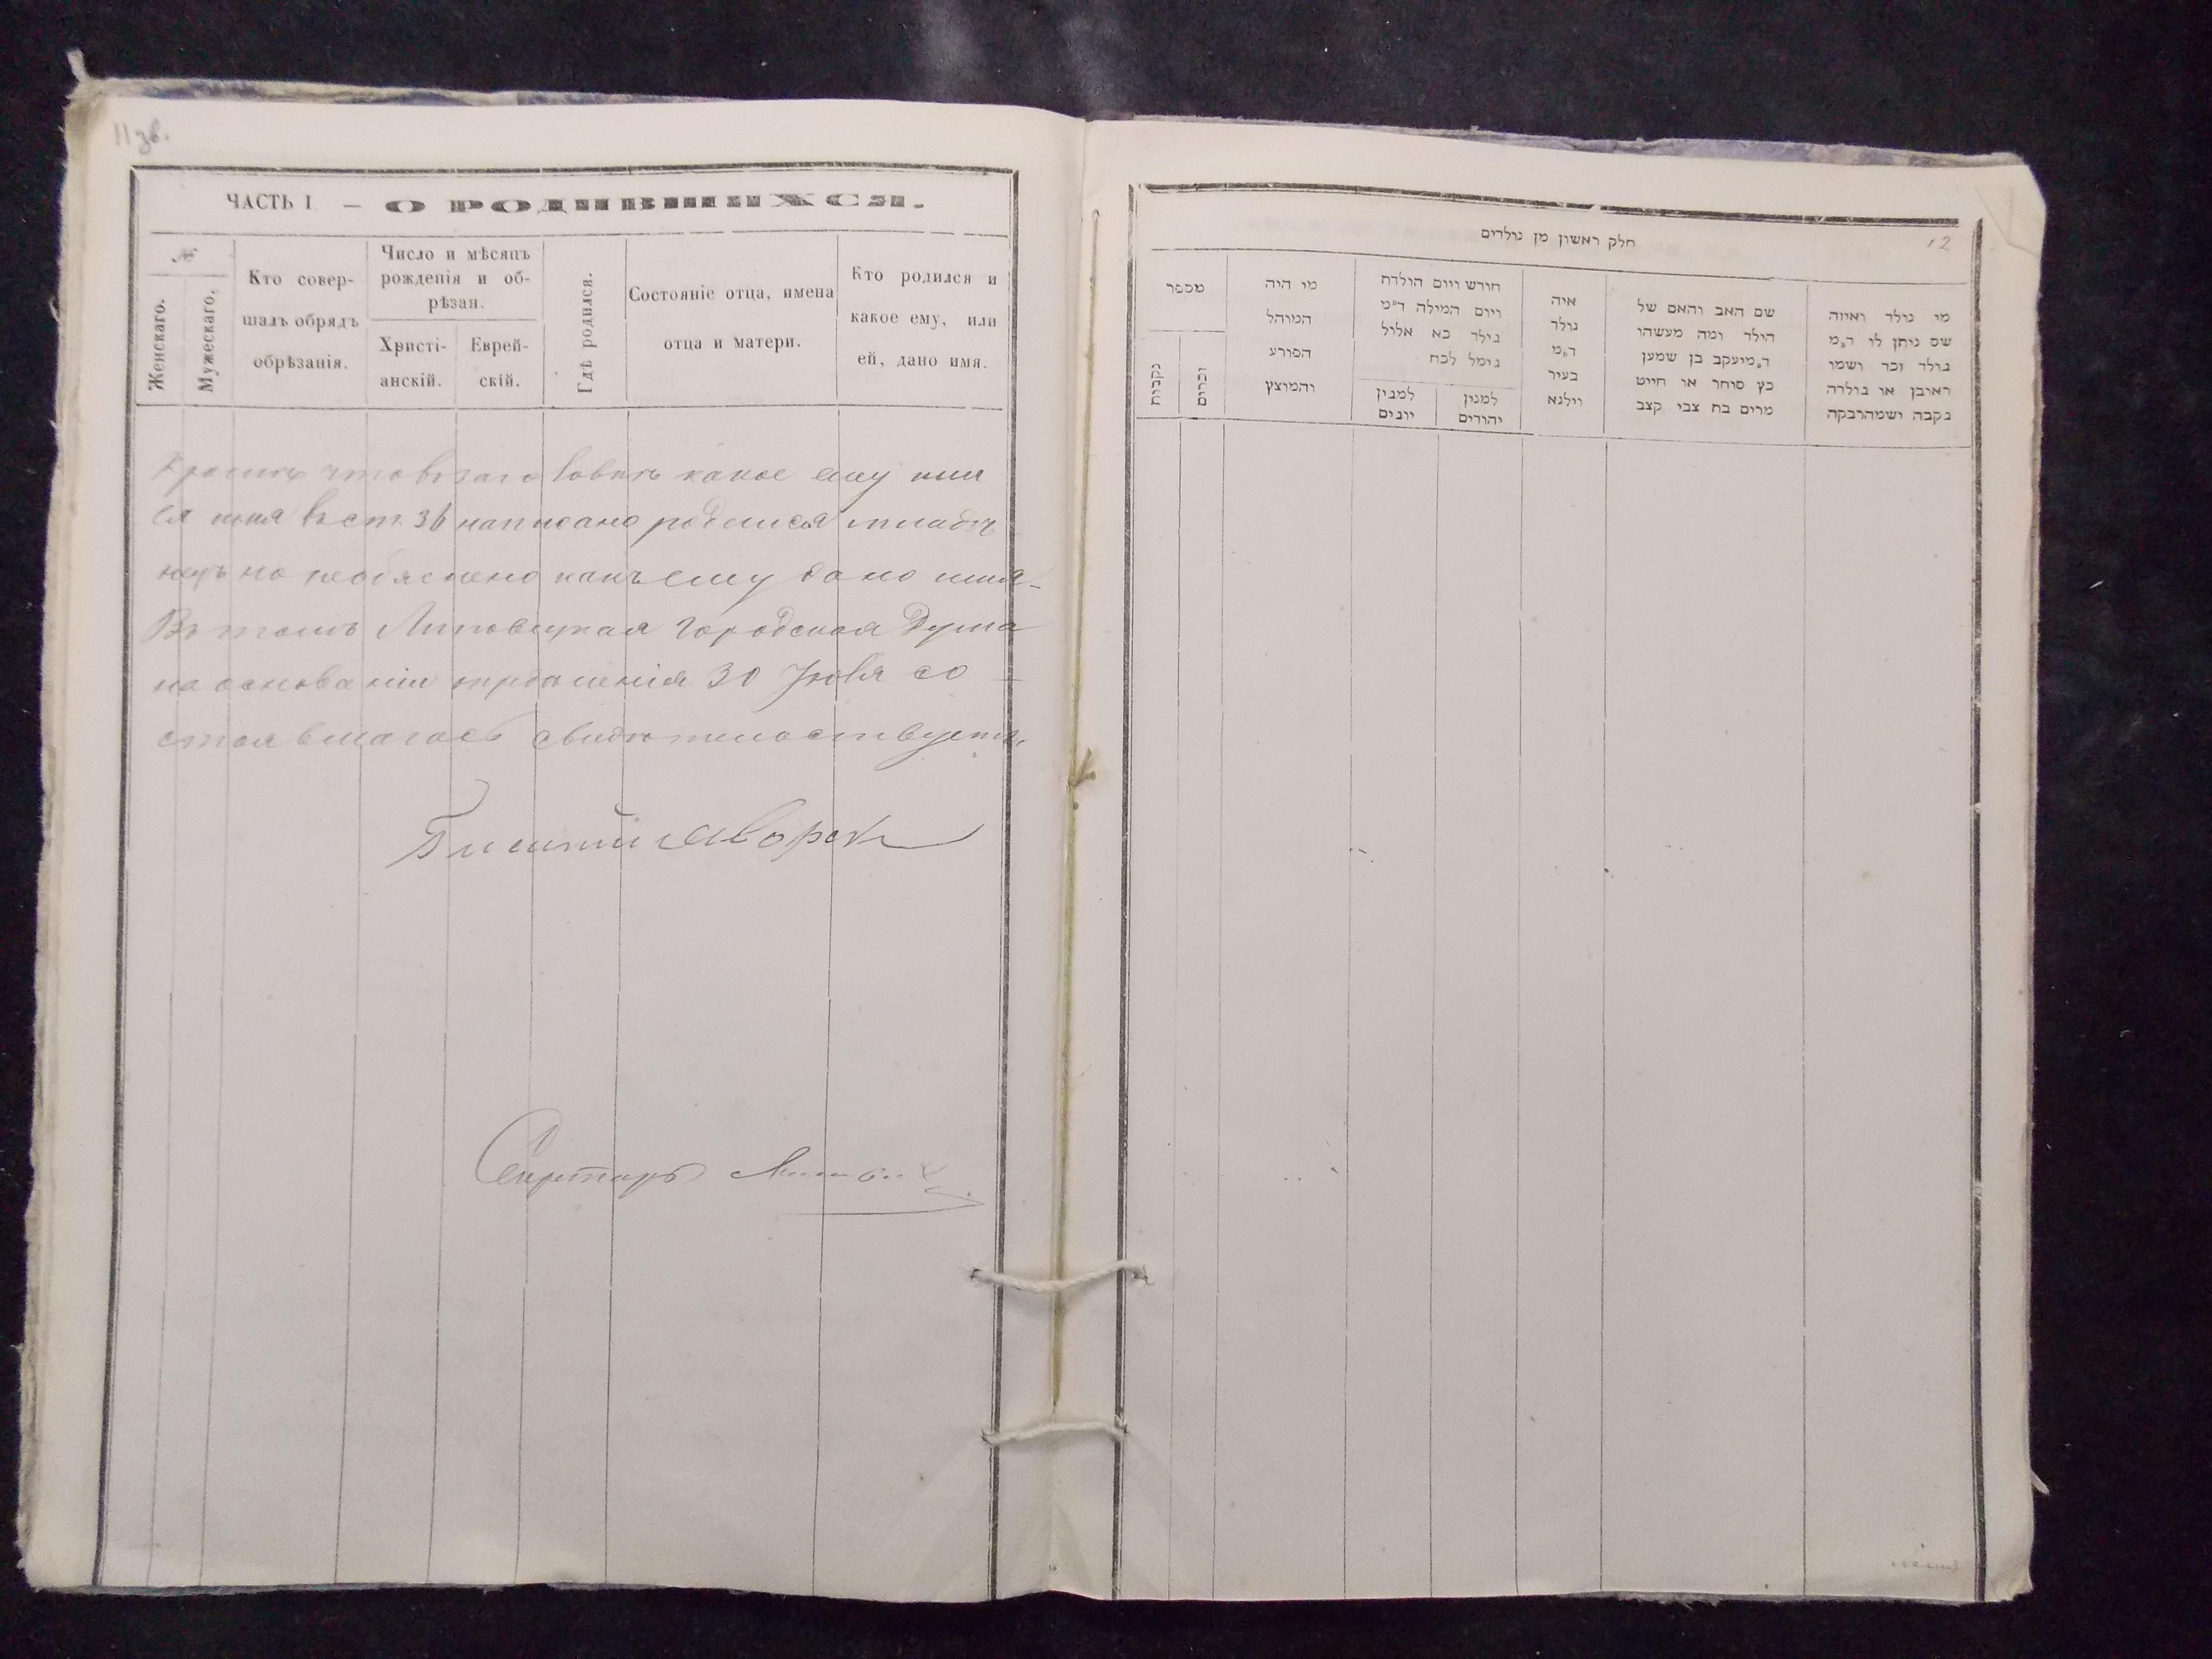 11 зв.
ЧАСТЬ I. — О РОДИВШИХСЯ.
№
Женскаго.
Мужескаго.
Кто совер-
шалъ обрядъ
обрѣзанія.
Число и мѣсяцъ
рожденія и об-
рѣзан.
Христі-
анскій.
Еврей-
скій.
Гдѣ родился.
Состояніе отца, имена
отца и матери.
Кто родился и
какое ему, или
ей, дано имя.
какое ему
имя въ ст. 36 написано родился младе
нецъ но необяснено какъ ему дано имя
Въ томъ Липовецкая Городская Дума
на основаніи 30 Июля со
стоявшагося свидѣтельствуетъ.
Секретарь
12
חלק ראשון מן נולדים
מספר
נקבות
זכרים
מי היה
המוהל
הפורע
והמוצץ
חורש ויום הולדת
ויום המילה ד״מ
נילד כא אלול
נימל לכח
למנין
יונים
למנין
יהורים
איה
נולד
ד״מ
בעיר
וילנא
שם האב והאם של
הילד ומה מעשהו
ד״מיעקב בן שמען
כץ סוחר או חייט
מרים בח צבי קצב
מי נולד ואיזה
שם ניתן לו ד״מ
נולד זכר ושמו
ראובן או נולדה
נקבה ישמהרבקה